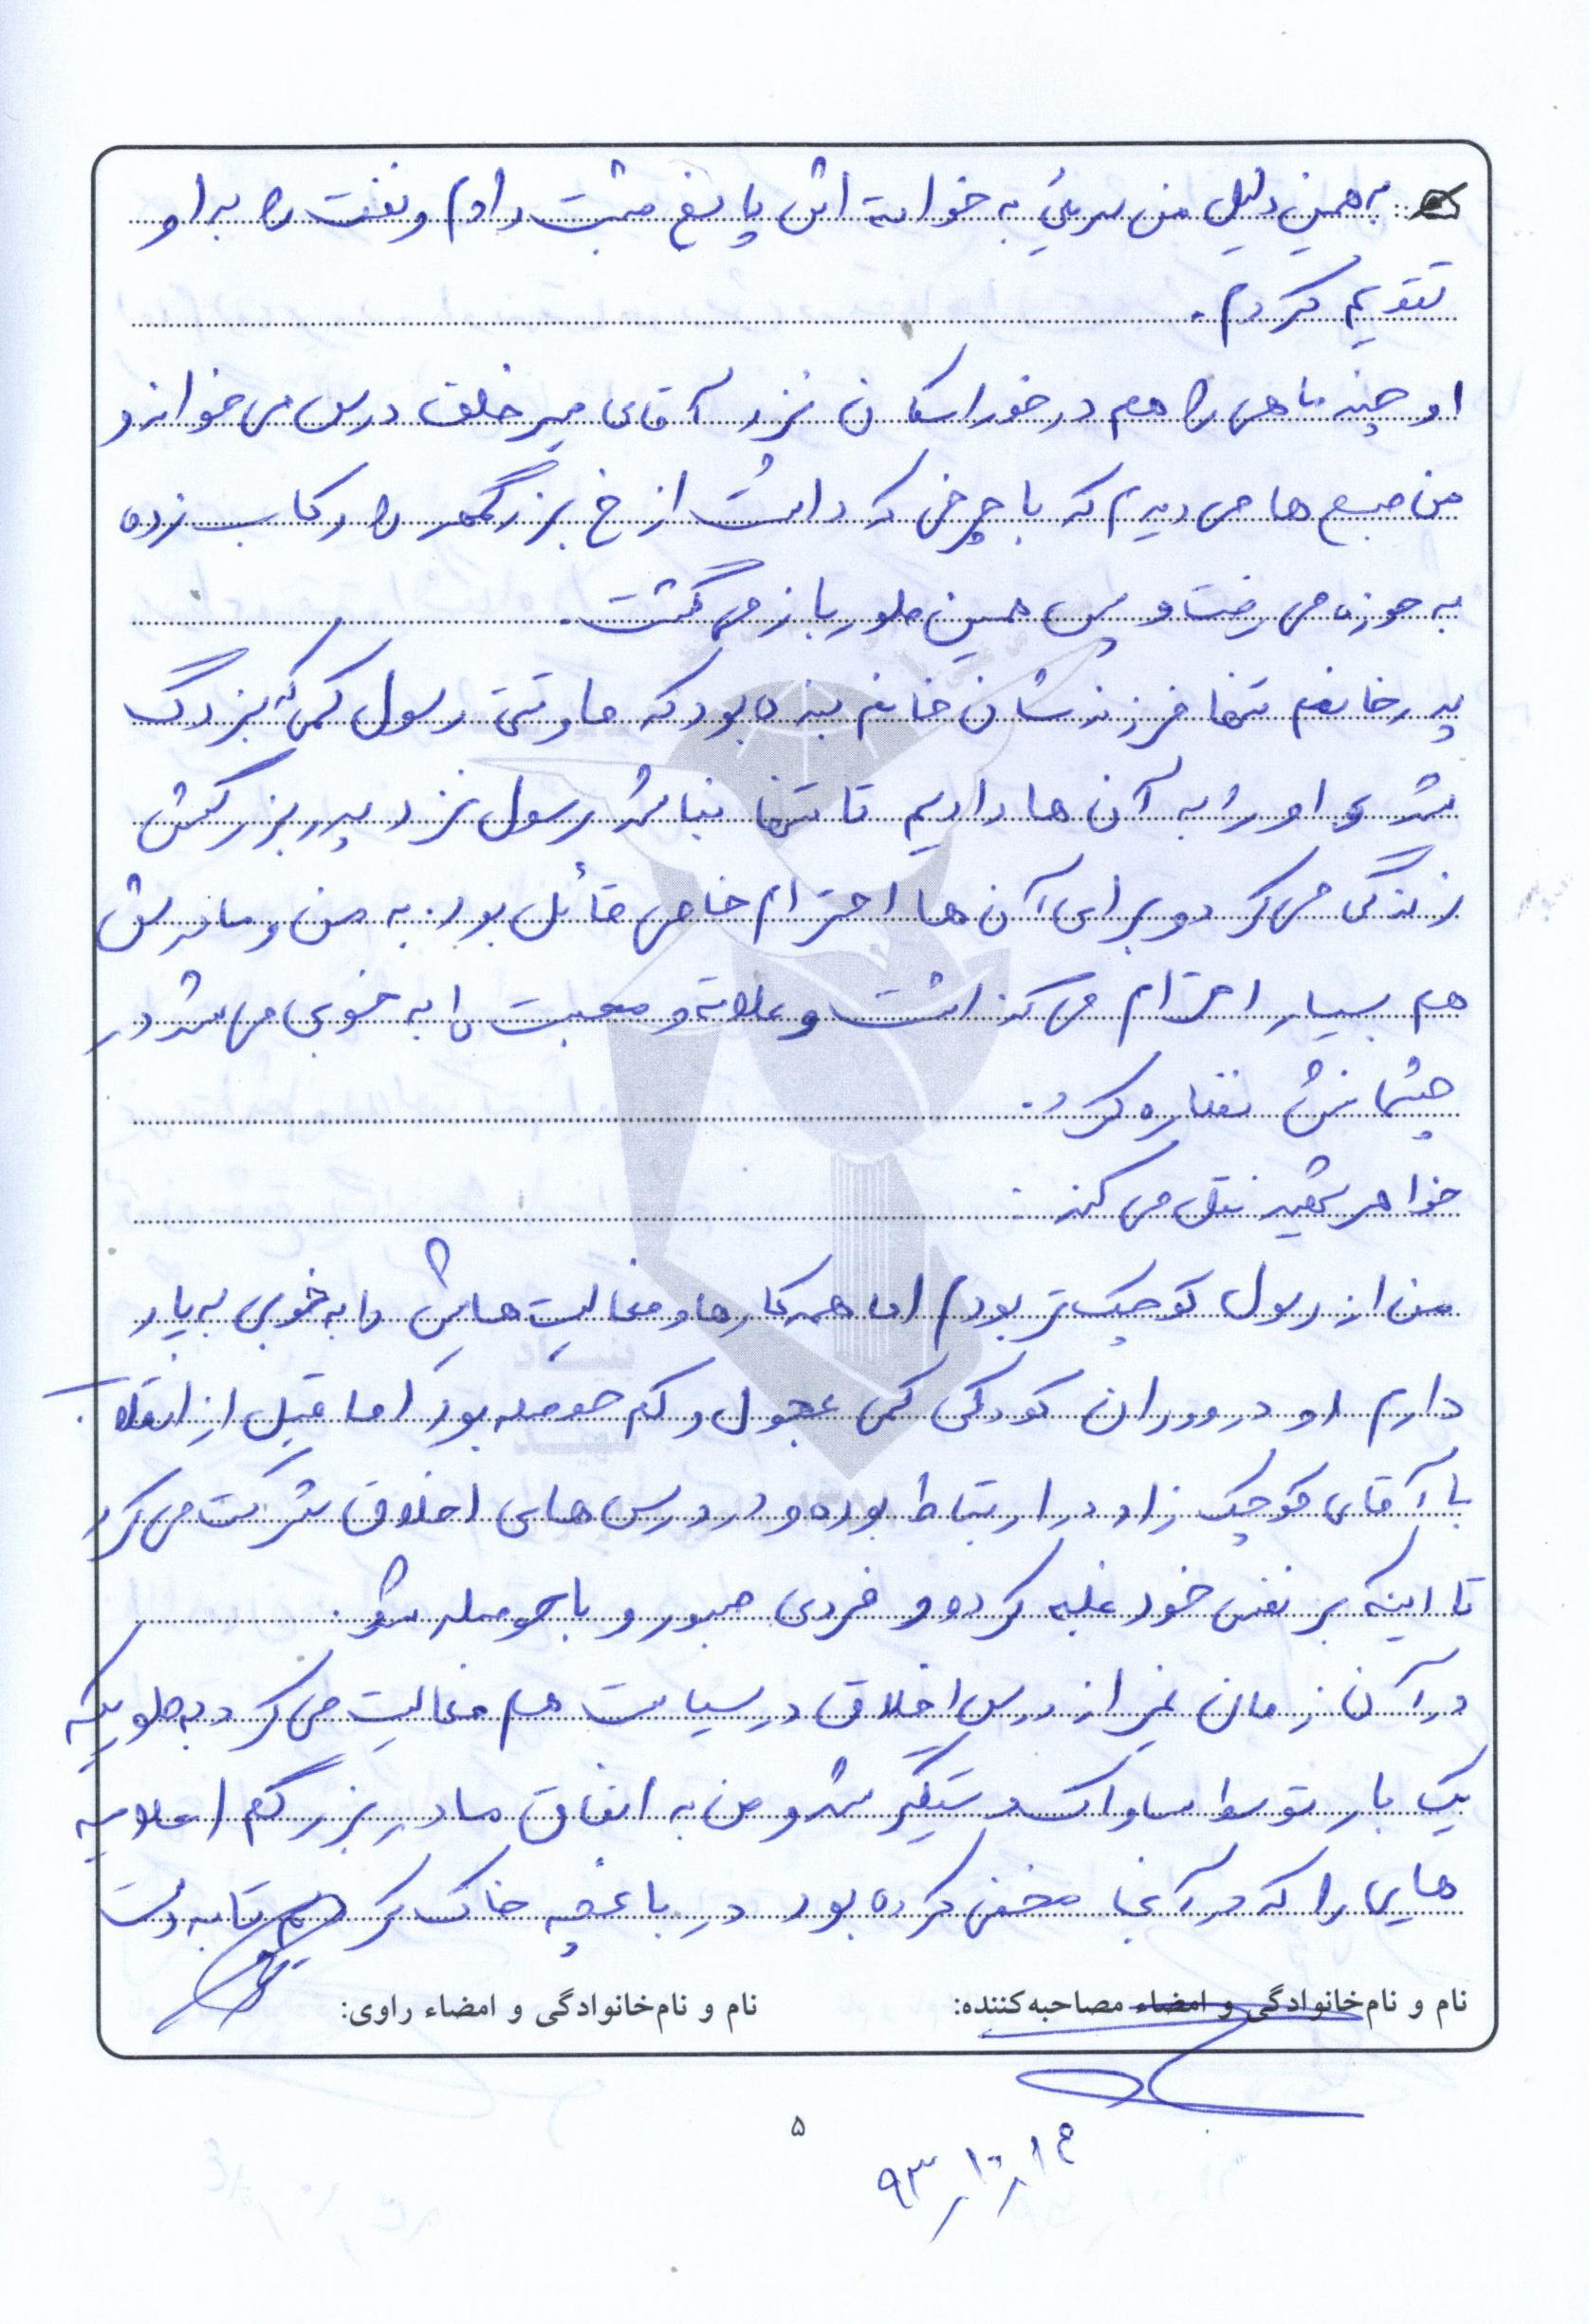 به همین دلیل من سریع به خواسته اش پاسخ مثبت دادم و نفت را به او
تقدیم کردم.
او چند ماهی را هم در خوراسگان نزد آقای میر خلف درس می خواند و
من صبح ها می دیدم که با چرخی که داشت از خ بزرگمهر را رکاب زده
به حوزه می رفت و پس همین طور باز می گشت.
پدر خانمم تنها فرزندشان خانم بنده بود که ما وقتی رسول کمی که بزرگ
شد او را به آن ها دادیم تا تنها نباشد رسول نزد پدر بزرگش
زندگی می کرد و برای آن ها احترام خاص قائل بود. به من و مادرش
هم بسیار احترام می گذاشت و علاقه و محبت را به خوبی می شد در
چشمانش نظاره کرد.
خواهر شهید نقل می کند:
من از رسول کوچک تر بودم اما همه کارها و فعالیت هایش را به خوبی به یاد
دارم او در دوران کودکی کمی عجول و کم حوصله بود اما قبل از انقلاب
با آقای کوچک زاد در ارتباط بوده و در درس های اخلاق شرکت می کرد
تا اینکه بر نفس خود غلبه کرده و فردی صبور و با حوصله شد.
در آن زمان غیر از درس اخلاق در سیاست هم فعالیت می کرد به طوریکه
یک بار توسط ساواک دستگیر شد و من به اتفاق مادر بزرگم اعلامیه
هایی را که در آنجا مخفی کرده بود در باغچه خاک کردیم تا به دست
نام و نام‌خانوادگی و امضاء مصاحبه‌کننده: نام و نام‌خانوادگی و امضاء راوی:
بنیاد
شهید
۵